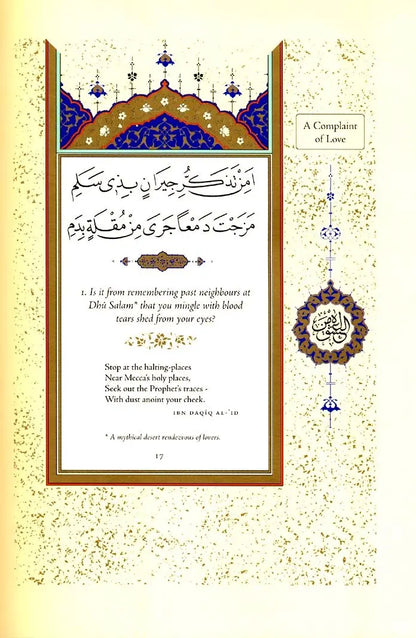 اَمِنْ تَذَكُّرِ جِيرَانٍ بِذِي سَلَمِ
مَزَجْتَ دَمْعًا جَرَى مِنْ مُقْلَةٍ بِدَمِ
1. Is it from remembering past neighbours at
Dhū Salam* that you mingle with blood
tears shed from your eyes?
Stop at the halting-places
Near Mecca's holy places,
Seek out the Prophet's traces -
With dust anoint your cheek.
IBN DAQĪQ AL-ʿID
* A mythical desert rendezvous of lovers.
17
A Complaint
of Love